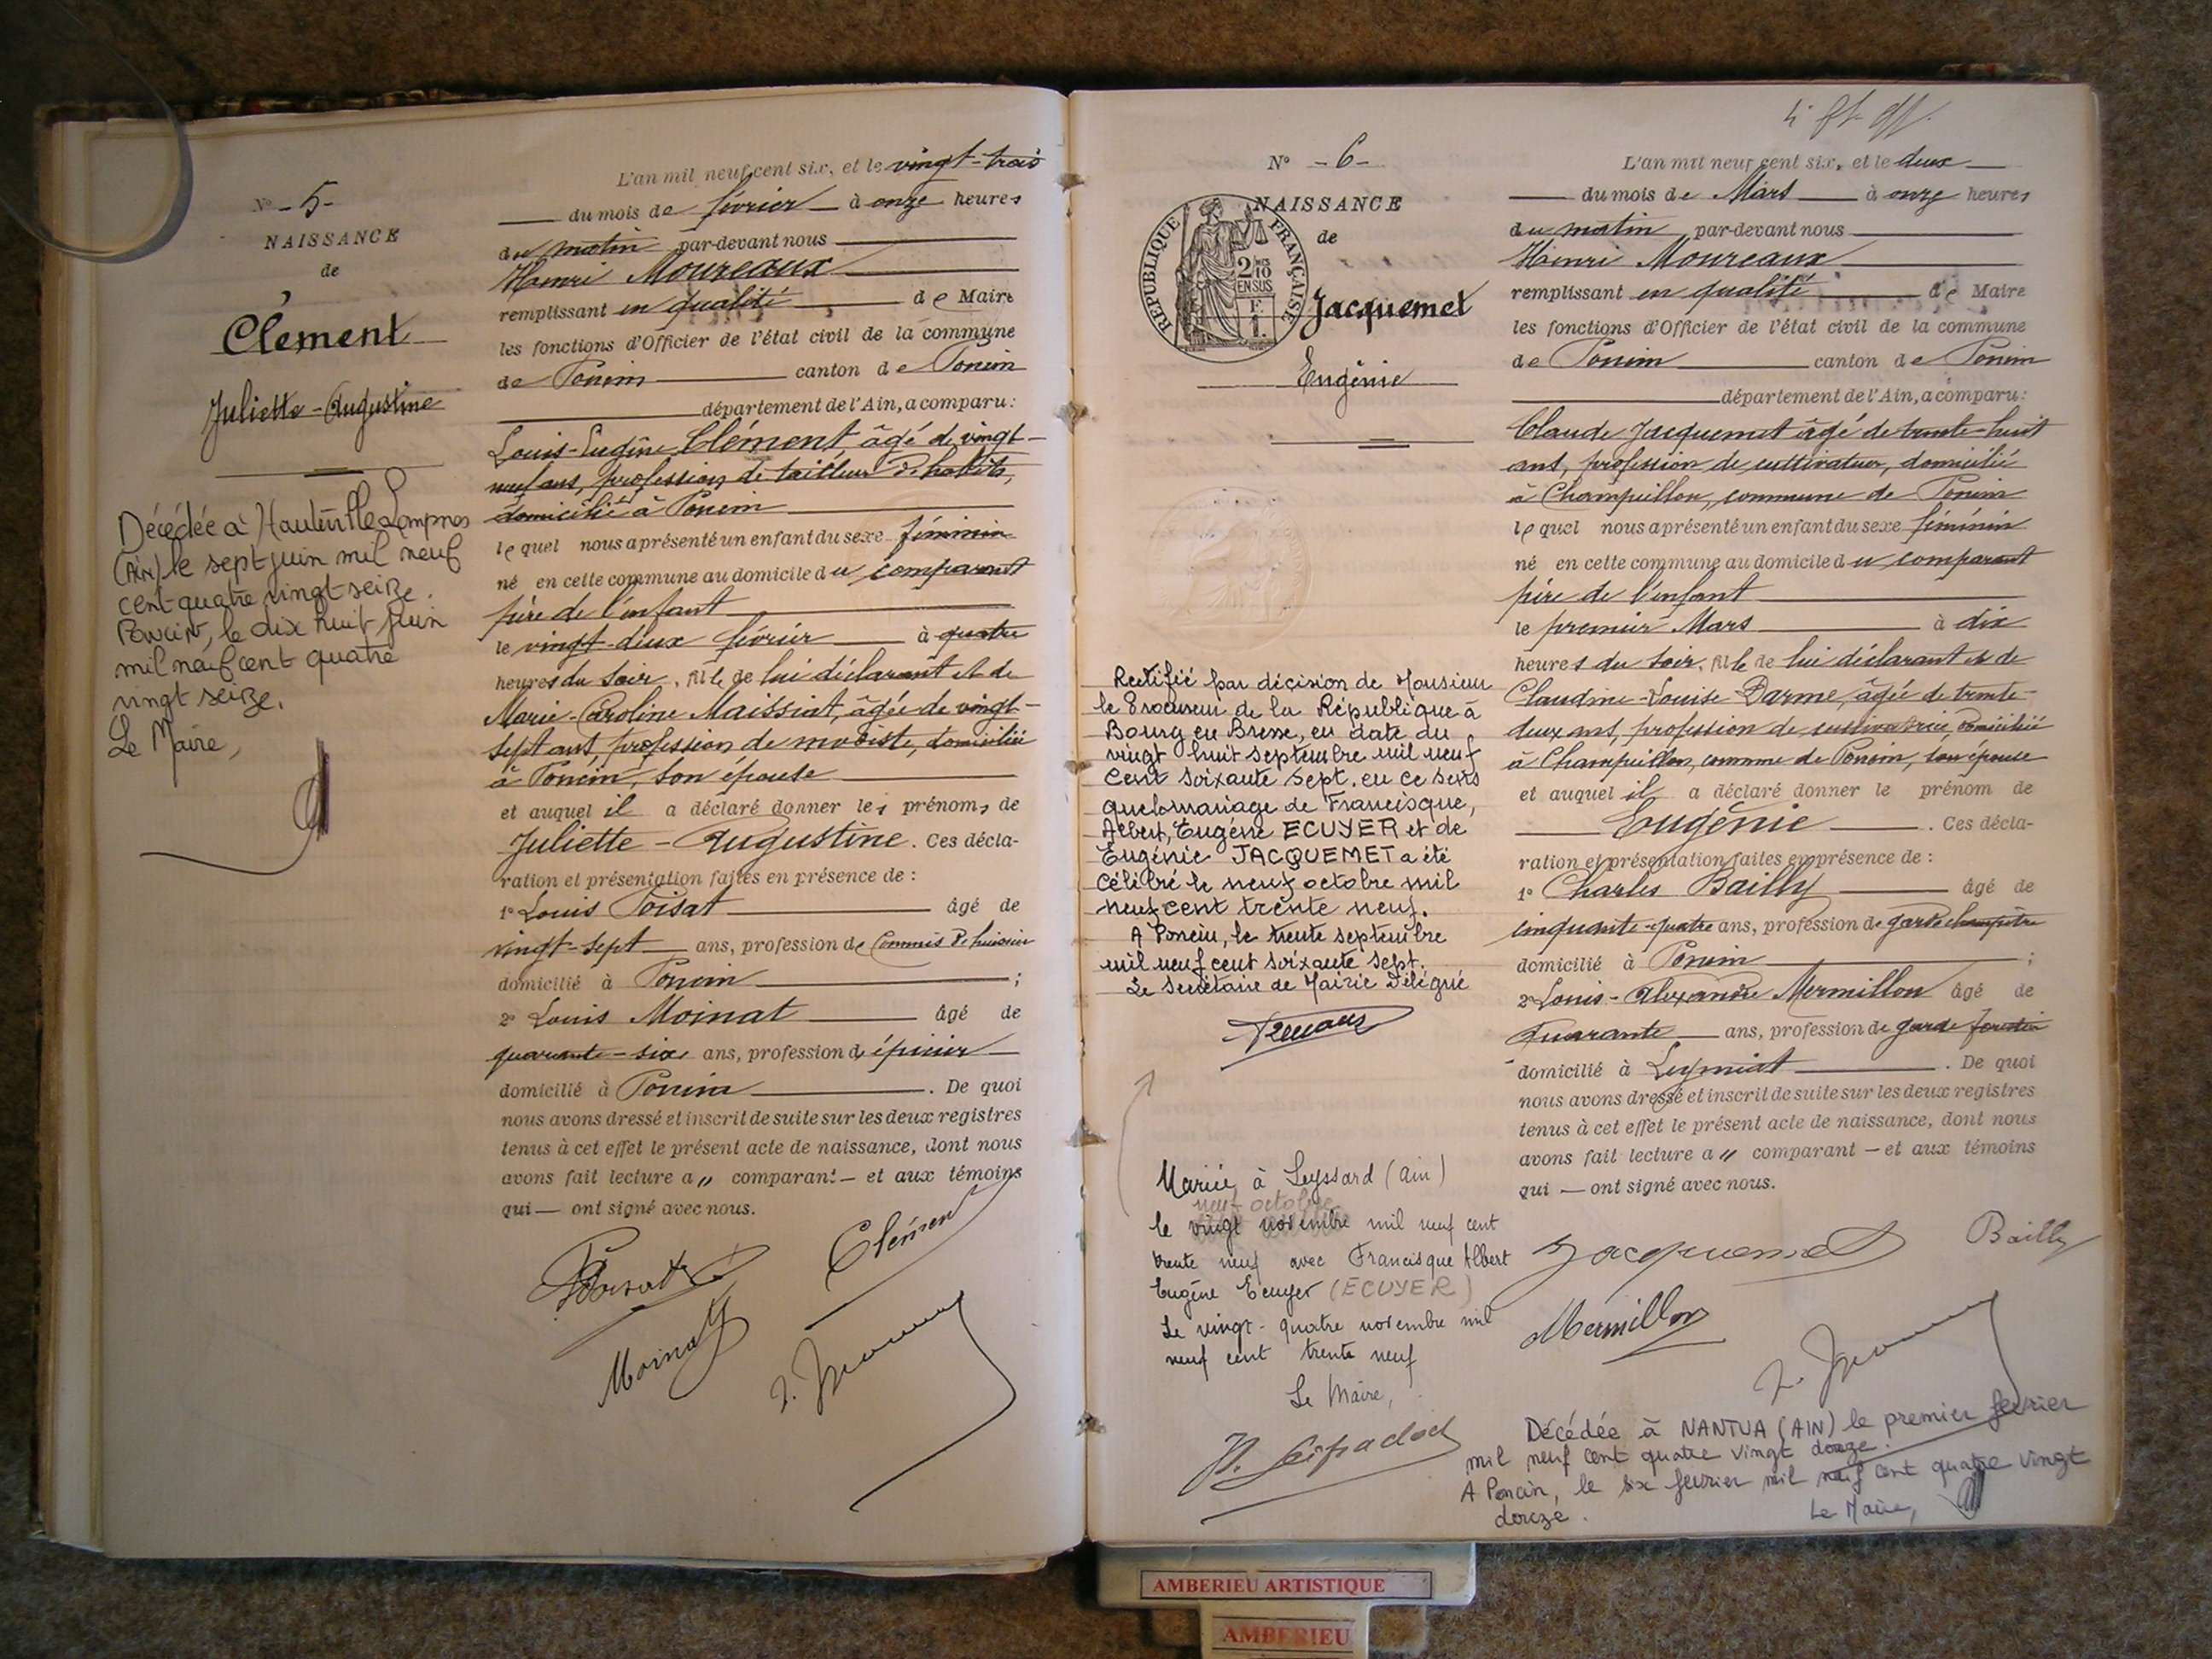 N° - 5 -
NAISSANCE
de
Clément
Juliette-Augustine
Décédée à Hauteville Lompnes
(Ain) le sept juin mil neuf
cent quatre vingt seize.
Poncin, le dix huit juin
mil neuf cent quatre
vingt seize.
Le Maire,
L'an mil neuf cent six, et le vingt-trois
du mois de février à onze heures
du matin par-devant nous
Henri Moureaux
remplissant en qualité de Maire
les fonctions d'Officier de l'état civil de la commune
de Poncin canton de Poncin
département de l'Ain, a comparu:
Louis-Eugène Clément, âgé de vingt-
neuf ans, profession de tailleur d'habits,
domicilié à Poncin
lequel nous a présenté un enfant du sexe féminin
né en cette commune au domicile du comparant
père de l'enfant
le vingt-deux février à quatre
heures du soir, fille de lui déclarant et de
Marie-Caroline Maissiat, âgée de vingt-
sept ans, profession de modiste, domiciliée
à Poncin, son épouse
et auquel il a déclaré donner les prénoms de
Juliette-Augustine. Ces décla-
ration et présentation faites en présence de :
1° Louis Poisat âgé de
vingt-sept ans, profession de Commis d'huissier
domicilié à Poncin ;
2° Louis Moinat âgé de
quarante-six ans, profession d'épicier
domicilié à Poncin . De quoi
nous avons dressé et inscrit de suite sur les deux registres
tenus à cet effet le présent acte de naissance, dont nous
avons fait lecture a" comparant - et aux témoins
qui — ont signé avec nous.
Poisat Clément
Moinat
N° - 6 -
NAISSANCE
de
REPUBLIQUE FRANÇAISE
2/10 EN SUS
F.
1.
Jacquemet
Eugénie
Rectifié par décision de Monsieur
le Procureur de la République à
Bourg en Bresse, en date du
vingt huit septembre mil neuf
cent soixante sept. en ce sens
que le mariage de Francisque,
Albert, Eugène ECUYER et de
Eugénie JACQUEMET a été
célébré le neuf octobre mil
neuf cent trente neuf.
A Poncin, le trente septembre
mil neuf cent soixante sept.
Le Secrétaire de Mairie Délégué
Mariée à Leyssard (Ain)
neuf octobre
le vingt novembre mil neuf cent
trente neuf avec Francisque Albert
Eugène Ecuyer (ECUYER)
Le vingt-quatre novembre mil
neuf cent trente neuf
Le Maire,
L'an mil neuf cent six, et le deux
du mois de Mars à onze heures
du matin par-devant nous
Henri Moureaux
remplissant en qualité de Maire
les fonctions d'Officier de l'état civil de la commune
de Poncin canton de Poncin
département de l'Ain, a comparu:
Claude Jacquemet âgé de trente-huit
ans, profession de cultivateur, domicilié
à Champeillon, commune de Poncin
lequel nous a présenté un enfant du sexe féminin
né en cette commune au domicile du comparant
père de l'enfant
le premier Mars à dix
heures du soir, fille de lui déclarant et de
Claudine-Louise Darme, âgée de trente-
deux ans, profession de cultivatrice, domiciliée
à Champeillon, commune de Poncin, son épouse
et auquel il a déclaré donner le prénom de
Eugénie . Ces décla-
ration et présentation faites en présence de :
1° Charles Bailly âgé de
cinquante-quatre ans, profession de garde champêtre
domicilié à Poncin ;
2° Louis-Alexandre Mermillon âgé de
quarante ans, profession de garde forestier
domicilié à Leymiat . De quoi
nous avons dressé et inscrit de suite sur les deux registres
tenus à cet effet le présent acte de naissance, dont nous
avons fait lecture a" comparant — et aux témoins
qui — ont signé avec nous.
Jacquemet Bailly
Mermillon
Décédée à NANTUA (AIN) le premier février
mil neuf cent quatre vingt douze.
A Poncin, le six février mil neuf cent quatre vingt
douze.
Le Maire,
AMBERIEU ARTISTIQUE
AMBERIEU